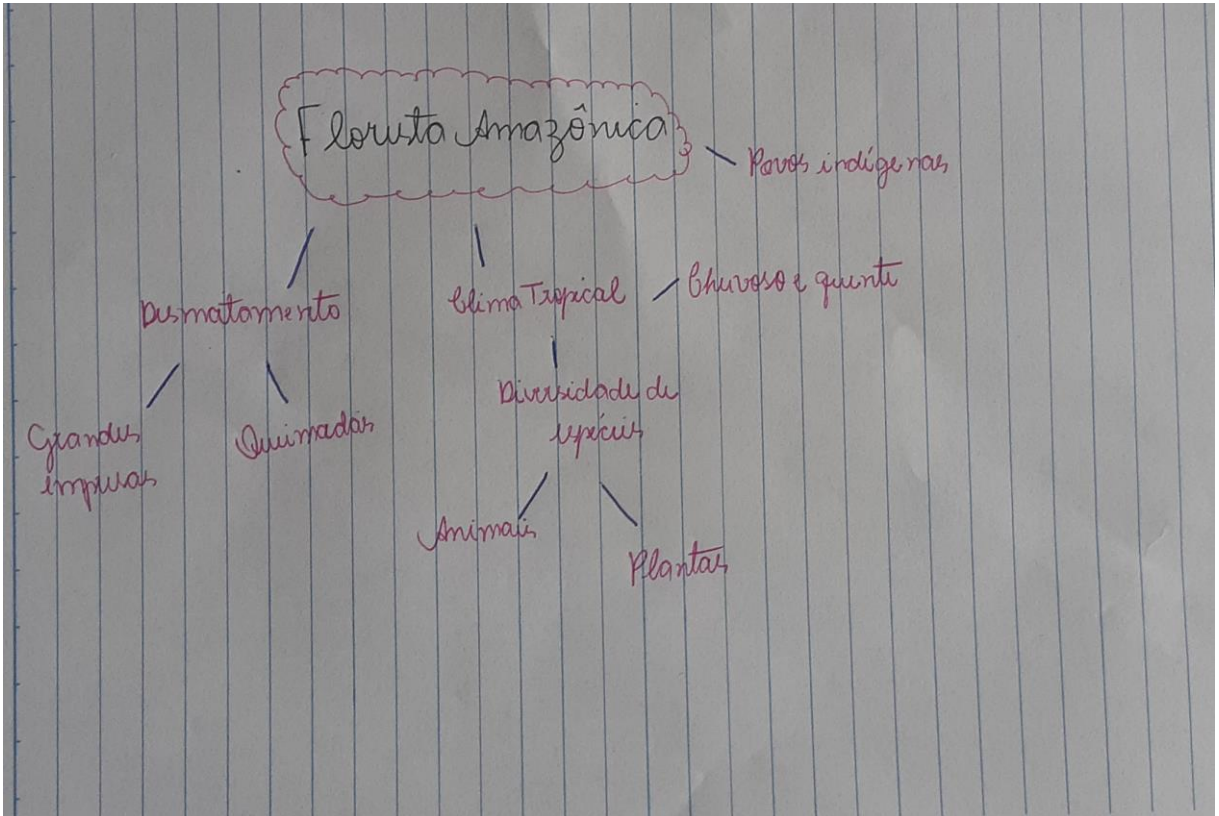 Floresta Amazônica
Povos indígenas
Desmatamento
Clima Tropical
Chuvoso e quente
Grandes
empresas
Queimadas
Diversidade de
espécies
Animais
Plantas